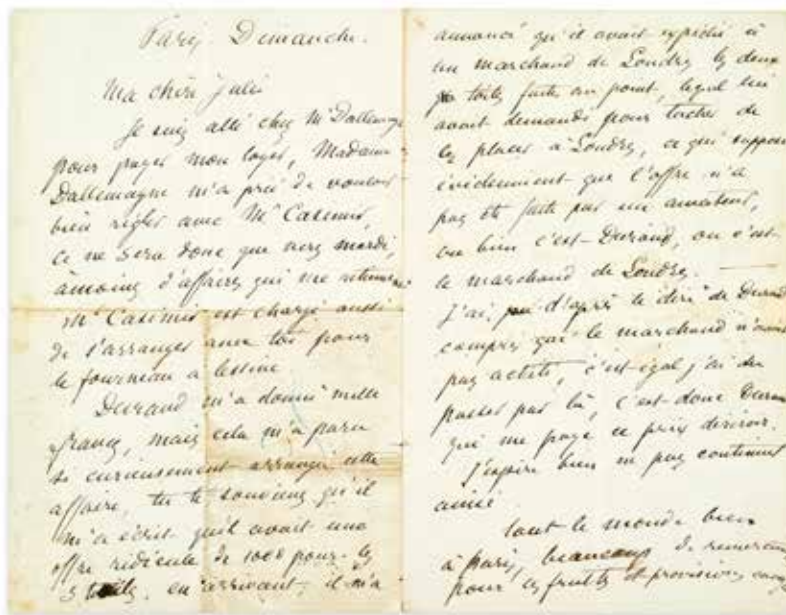 Paris Dimanche.
Ma chère Julie
Je suis allé chez Mr Dallemagne
pour payer mon loyer, Madame
Dallemagne m'a prié de vouloir
bien régler avec Mr Casimir,
ce ne sera donc que vers mardi,
à moins d'affaires qui me retiennent
Mr Casimir est chargé aussi
de s'arranger avec toi pour
le fourneau à lessive
Durand m'a donné mille
francs, mais cela m'a paru
si curieusement arrangé cette
affaire, tu te souviens qu'il
m'a écrit qu'il avait une
offre ridicule de 1000 pour les
3 toiles, en arrivant, il m'a
annoncé qu'il avait expédié à
un marchand de Londres les deux
toiles faites au point, lequel lui
avait demandé pour tacher de
les placer à Londres, ce qui suppose
évidemment que l'offre n'a
pas été faite par un amateur,
ou bien c'est Durand, ou c'est
le marchand de Londres.
J'ai d'après le dire de Durand
compris que le marchand n'avait
pas acheté, c'est égal j'ai du
passer par là, c'est donc Durand
qui me paye ce prix dérisoire.
J'espère bien ne pas continuer
ainsi
tout le monde bien
à Paris, beaucoup de remerciements
pour les fruits et provisions